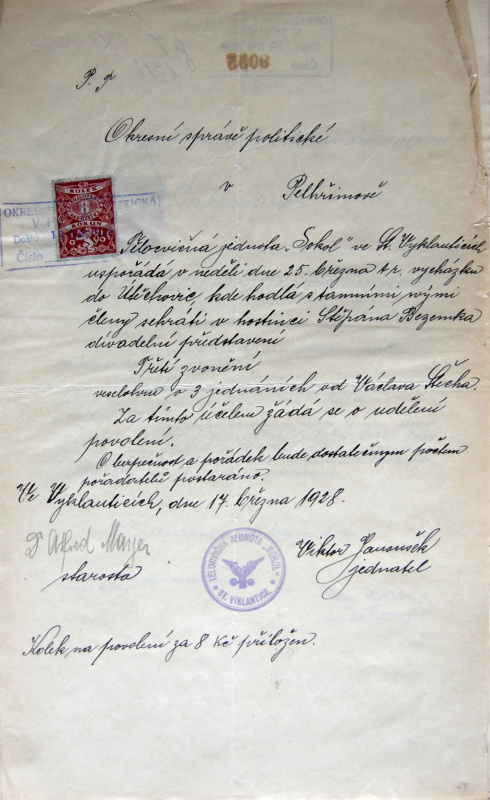 P. T.
Okresní správě politické
v Pelhřimově
Tělocvičná jednota "Sokol" ve St. Vyklanticích
uspořádá v neděli dne 25. března t.r. vycházku
do Útěchovic, kde hodlá s tamními svými
členy sehráti v hostinci Štěpána Bezemka
divadelní představení
Třetí zvonění
veselohru o 3 jednáních od Václava Štecha.
Za tímto účelem žádá se o udělení
povolení.
O bezpečnost a pořádek bude dostatečným počtem
pořadatelů postaráno.
Ve Vyklanticích, dne 17. března 1928.
Dr Alfred Mayer
starosta
Viktor Janoušek
jednatel
TĚLOCVIČNÁ JEDNOTA "SOKOL"
ST. VIKLANTICE.
Kolek na povolení za 8 Kč přiložen.
KOLEK
8
KORUN
Došlo
Číslo